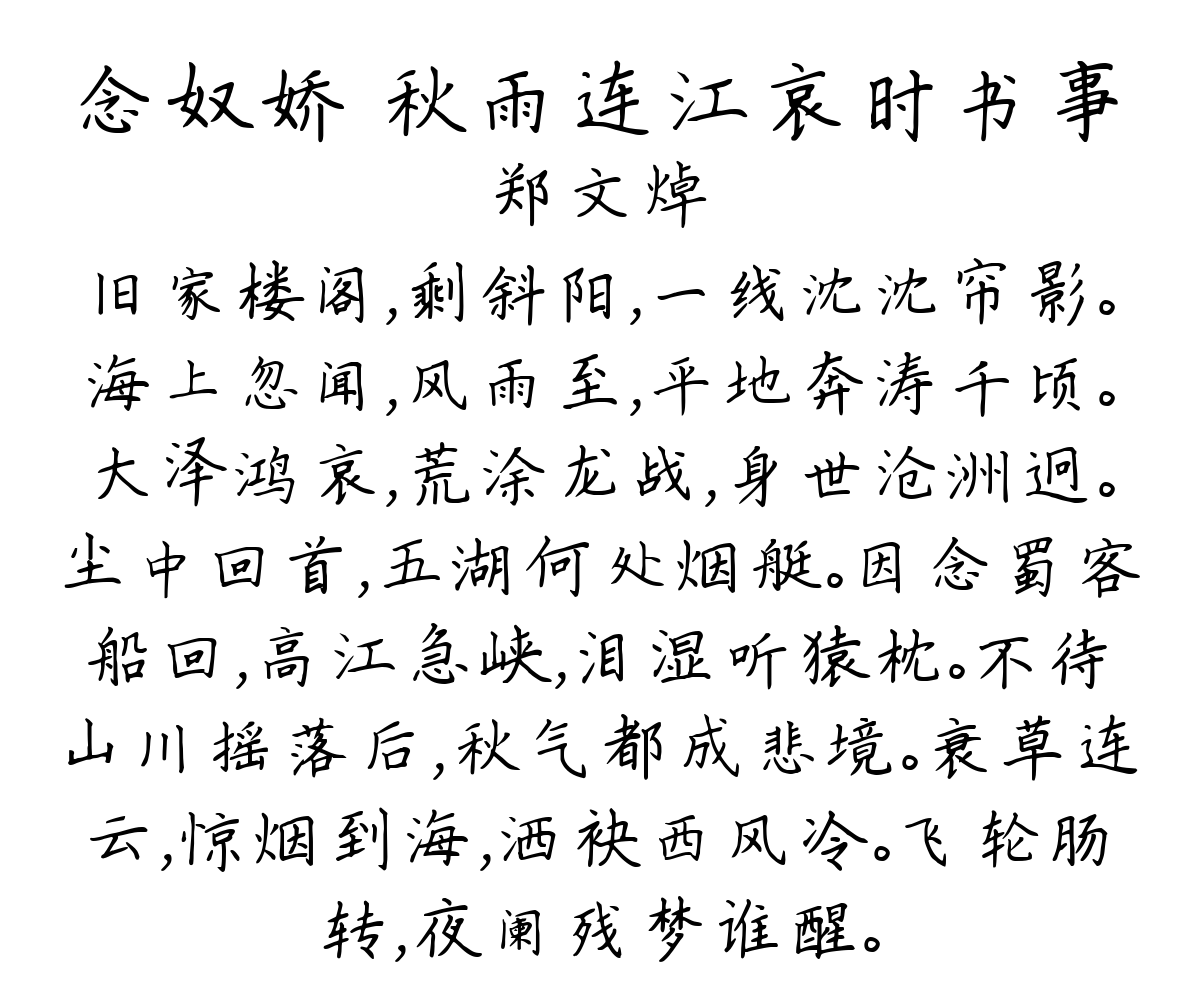 念奴娇 秋雨连江哀时书事
郑文焯
旧家楼阁,剩斜阳,一线沈沈帘影。
海上忽闻,风雨至,平地奔涛千顷。
大泽鸿哀,荒涂龙战,身世沧洲迥。
尘中回首,五湖何处烟艇。因念蜀客
船回,高江急峡,泪湿听猿枕。不待
山川摇落后,秋气都成悲境。衰草连
云,惊烟到海,洒袂西风冷。飞轮肠
转,夜阑残梦谁醒。